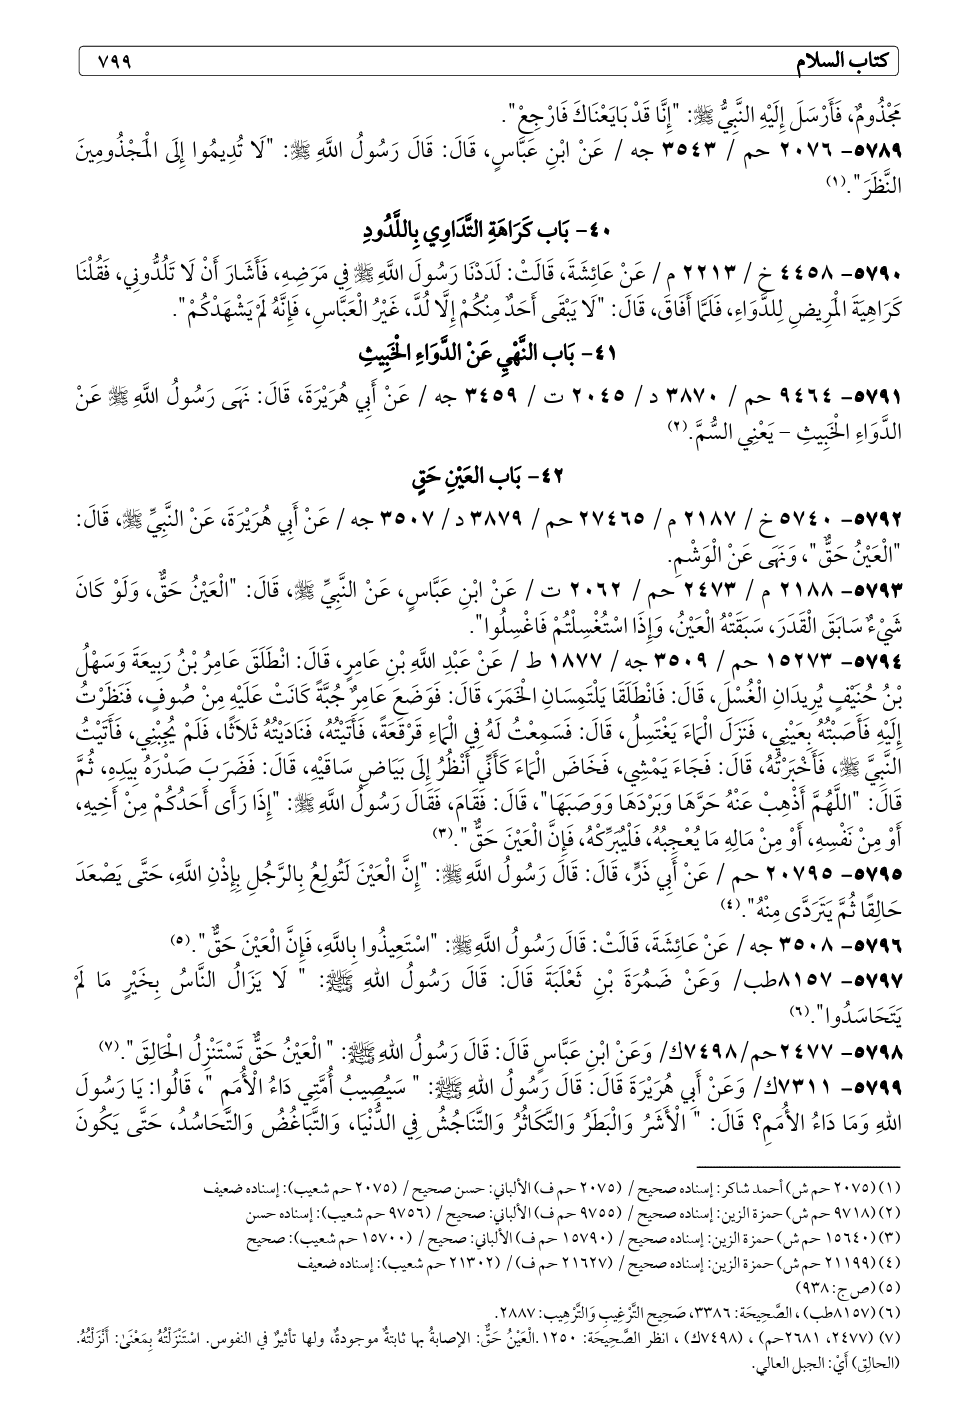 كتاب السلام ٧٩٩
مَجْذُومٌ، فَأَرْسَلَ إِلَيْهِ النَّبِيُّ ﷺ: "إِنَّا قَدْ بَايَعْنَاكَ فَارْجِعْ".
٥٧٨٩- ٢٠٧٦ حم / ٣٥٤٣ جه / عَنْ ابْنِ عَبَّاسٍ، قَالَ: قَالَ رَسُولُ اللَّهِ ﷺ: "لَا تُدِيمُوا إِلَى الْمَجْذُومِينَ
النَّظَرَ".(١)
٤٠- بَاب كَرَاهَةِ التَّدَاوِي بِاللَّدُودِ
٥٧٩٠- ٤٤٥٨ خ / ٢٢١٣ م / عَنْ عَائِشَةَ، قَالَتْ: لَدَدْنَا رَسُولَ اللَّهِ ﷺ فِي مَرَضِهِ، فَأَشَارَ أَنْ لَا تَلُدُّونِي، فَقُلْنَا
كَرَاهِيَةَ الْمَرِيضِ لِلدَّوَاءِ، فَلَمَّا أَفَاقَ، قَالَ: "لَا يَبْقَى أَحَدٌ مِنْكُمْ إِلَّا لُدَّ، غَيْرُ الْعَبَّاسِ، فَإِنَّهُ لَمْ يَشْهَدْكُمْ".
٤١- بَاب النَّهْيِ عَنْ الدَّوَاءِ الْخَبِيثِ
٥٧٩١- ٩٤٦٤ حم / ٣٨٧٠ د / ٢٠٤٥ ت / ٣٤٥٩ جه / عَنْ أَبِي هُرَيْرَةَ، قَالَ: نَهَى رَسُولُ اللَّهِ ﷺ عَنْ
الدَّوَاءِ الْخَبِيثِ – يَعْنِي السُّمَّ.(٢)
٤٢- بَاب العَيْنِ حَقٍ
٥٧٩٢- ٥٧٤٠ خ / ٢١٨٧ م / ٢٧٤٦٥ حم / ٣٨٧٩ د / ٣٥٠٧ جه / عَنْ أَبِي هُرَيْرَةَ، عَنْ النَّبِيِّ ﷺ، قَالَ:
"الْعَيْنُ حَقٌّ"، وَنَهَى عَنْ الْوَشْمِ.
٥٧٩٣- ٢١٨٨ م / ٢٤٧٣ حم / ٢٠٦٢ ت / عَنْ ابْنِ عَبَّاسٍ، عَنْ النَّبِيِّ ﷺ، قَالَ: "الْعَيْنُ حَقٌّ، وَلَوْ كَانَ
شَيْءٌ سَابَقَ الْقَدَرَ، سَبَقَتْهُ الْعَيْنُ، وَإِذَا اسْتُغْسِلْتُمْ فَاغْسِلُوا".
٥٧٩٤- ١٥٢٧٣ حم / ٣٥٠٩ جه / ١٨٧٧ ط / عَنْ عَبْدِ اللَّهِ بْنِ عَامِرٍ، قَالَ: انْطَلَقَ عَامِرُ بْنُ رَبِيعَةَ وَسَهْلُ
بْنُ حُنَيْفٍ يُرِيدَانِ الْغُسْلَ، قَالَ: فَانْطَلَقَا يَلْتَمِسَانِ الْخَمَرَ، قَالَ: فَوَضَعَ عَامِرٌ جُبَّةً كَانَتْ عَلَيْهِ مِنْ صُوفٍ، فَنَظَرْتُ
إِلَيْهِ فَأَصَبْتُهُ بِعَيْنِي، فَنَزَلَ الْمَاءَ يَغْتَسِلُ، قَالَ: فَسَمِعْتُ لَهُ فِي الْمَاءِ قَرْقَعَةً، فَأَتَيْتُهُ، فَنَادَيْتُهُ ثَلَاثًا، فَلَمْ يُجِبْنِي، فَأَتَيْتُ
النَّبِيَّ ﷺ، فَأَخْبَرْتُهُ، قَالَ: فَجَاءَ يَمْشِي، فَخَاضَ الْمَاءَ كَأَنِّي أَنْظُرُ إِلَى بَيَاضِ سَاقَيْهِ، قَالَ: فَضَرَبَ صَدْرَهُ بِيَدِهِ، ثُمَّ
قَالَ: "اللَّهُمَّ أَذْهِبْ عَنْهُ حَرَّهَا وَبَرْدَهَا وَوَصَبَهَا"، قَالَ: فَقَامَ، فَقَالَ رَسُولُ اللَّهِ ﷺ: "إِذَا رَأَى أَحَدُكُمْ مِنْ أَخِيهِ،
أَوْ مِنْ نَفْسِهِ، أَوْ مِنْ مَالِهِ مَا يُعْجِبُهُ، فَلْيُبَرِّكْهُ، فَإِنَّ الْعَيْنَ حَقٌّ".(٣)
٥٧٩٥- ٢٠٧٩٥ حم / عَنْ أَبِي ذَرٍّ، قَالَ: قَالَ رَسُولُ اللَّهِ ﷺ: "إِنَّ الْعَيْنَ لَتُولِعُ بِالرَّجُلِ بِإِذْنِ اللَّهِ، حَتَّى يَصْعَدَ
حَالِقًا ثُمَّ يَتَرَدَّى مِنْهُ".(٤)
٥٧٩٦- ٣٥٠٨ جه / عَنْ عَائِشَةَ، قَالَتْ: قَالَ رَسُولُ اللَّهِ ﷺ: "اسْتَعِيذُوا بِاللَّهِ، فَإِنَّ الْعَيْنَ حَقٌّ".(٥)
٥٧٩٧- ٨١٥٧طب/ وَعَنْ ضَمْرَةَ بْنِ ثَعْلَبَةَ قَالَ: قَالَ رَسُولُ اللهِ ﷺ: " لَا يَزَالُ النَّاسُ بِخَيْرٍ مَا لَمْ
يَتَحَاسَدُوا".(٦)
٥٧٩٨- ٢٤٧٧حم/٧٤٩٨ك/ وَعَنْ ابْنِ عَبَّاسٍ قَالَ: قَالَ رَسُولُ اللهِ ﷺ: " الْعَيْنُ حَقٌّ تَسْتَنْزِلُ الْحَالِقَ ".(٧)
٥٧٩٩- ٧٣١١ك/ وَعَنْ أَبِي هُرَيْرَةَ قَالَ: قَالَ رَسُولُ اللهِ ﷺ: " سَيُصِيبُ أُمَّتِي دَاءُ الْأُمَمِ "، قَالُوا: يَا رَسُولَ
اللهِ وَمَا دَاءُ الأُمَمِ؟ قَالَ: " الْأَشَرُ وَالْبَطَرُ وَالتَّكَاثُرُ وَالتَّنَاجُشُ فِي الدُّنْيَا، وَالتَّبَاغُضُ وَالتَّحَاسُدُ، حَتَّى يَكُونَ
(١) (٢٠٧٥ حم ش) أحمد شاكر: إسناده صحيح / (٢٠٧٥ حم ف) الألباني: حسن صحيح / (٢٠٧٥ حم شعيب): إسناده ضعيف
(٢) (٩٧١٨ حم ش) حمزة الزين: إسناده صحيح / (٩٧٥٥ حم ف) الألباني: صحيح / (٩٧٥٦ حم شعيب): إسناده حسن
(٣) (١٥٦٤٠ حم ش) حمزة الزين: إسناده صحيح / (١٥٧٩٠ حم ف) الألباني: صحيح / (١٥٧٠٠ حم شعيب): صحيح
(٤) (٢١١٩٩ حم ش) حمزة الزين: إسناده صحيح / (٢١٦٢٧ حم ف)/ (٢١٣٠٢ حم شعيب): إسناده ضعيف
(٥) (ص ج: ٩٣٨)
(٦) (٨١٥٧طب) ، الصَّحِيحَة: ٣٣٨٦، صَحِيح التَّرْغِيبِ وَالتَّرْهِيب: ٢٨٨٧.
(٧) (٢٤٧٧، ٢٦٨١حم) ، (٧٤٩٨ك) ، انظر الصَّحِيحَة: ١٢٥٠.الْعَيْنُ حَقٌّ: الإصابةُ بها ثابتةٌ موجودةٌ، ولها تأثيرٌ في النفوس. اسْتَنْزَلْتُهُ بِمَعْنَىٰ: أَنْزَلْتُهُ.
(الحالِق) أَيْ: الجبل العالي.